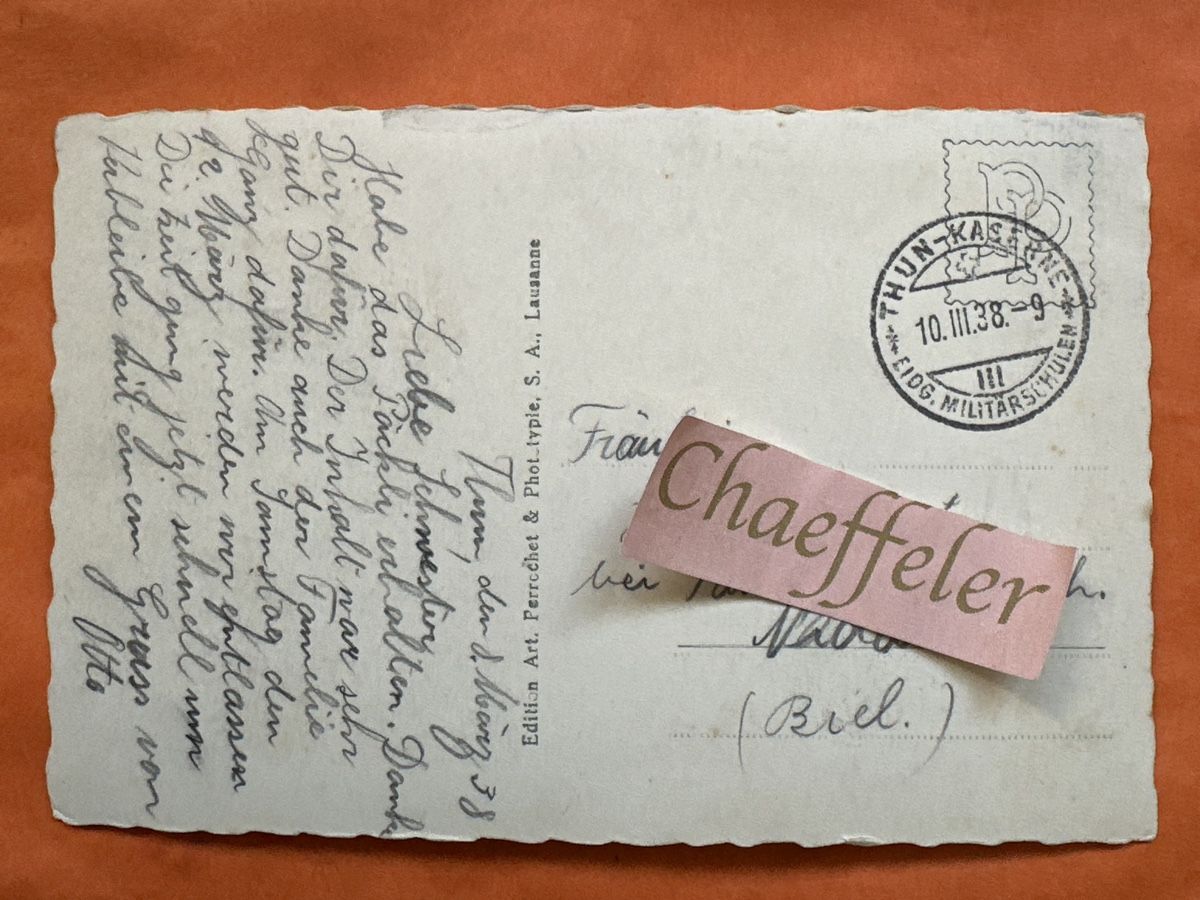 Thun, den d. März 38
Liebe Schwester,
Habe das Päckli erhalten. Danke
Dir dafür, Der Inhalt war sehr
gut. Danke auch der Familie
Ganz dafür. Am Samstag den
März werden wir entlassen
Die Zeit ging jetzt schnell um
Verbleibe mit einem Gruss von
Otto
Edition Art. Perrochet & Phototypie, S. A., Lausanne
THUN-KASERNE
10.III.38.-9
III
EIDG. MILITÄRSCHULEN
Chaeffeler
bei
(Biel.)